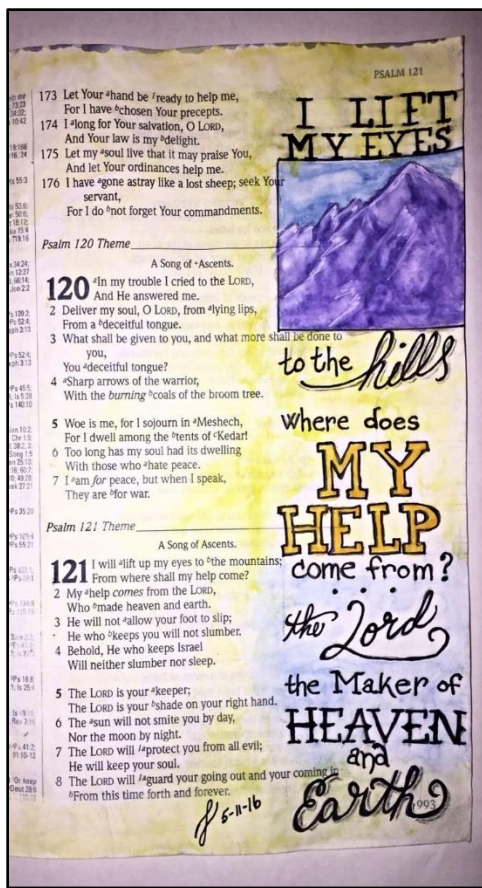 PSALM 121
173 Let Your ᵃhand be ʳready to help me,
For I have ᵇchosen Your precepts.
174 I ᵃlong for Your salvation, O LORD,
And Your law is my ᵇdelight.
175 Let my ᵃsoul live that it may praise You,
And let Your ordinances help me.
176 I have ᵃgone astray like a lost sheep; seek Your
servant,
For I do ᵇnot forget Your commandments.
Psalm 120 Theme
A Song of Ascents.
120 ᵃIn my trouble I cried to the LORD,
And He answered me.
2 Deliver my soul, O LORD, from ᵃlying lips,
From a ᵇdeceitful tongue.
3 What shall be given to you, and what more shall be done to
you,
You ᵃdeceitful tongue?
4 ᵃSharp arrows of the warrior,
With the burning ᵇcoals of the broom tree.
5 Woe is me, for I sojourn in ᵃMeshech,
For I dwell among the ᵇtents of ᶜKedar!
6 Too long has my soul had its dwelling
With those who ᵃhate peace.
7 I ᵃam for peace, but when I speak,
They are ᵇfor war.
Psalm 121 Theme
A Song of Ascents.
121 I will ᵃlift up my eyes to ᵇthe mountains;
From where shall my help come?
2 My ᵃhelp comes from the LORD,
Who ᵇmade heaven and earth.
3 He will not ᵃallow your foot to slip;
He who ᵇkeeps you will not slumber.
4 Behold, He who keeps Israel
Will neither slumber nor sleep.
5 The LORD is your ᵃkeeper;
The LORD is your ᵇshade on your right hand.
6 The ᵃsun will not smite you by day,
Nor the moon by night.
7 The LORD will ᵃprotect you from all evil;
He will keep your soul.
8 The LORD will ᵃguard your going out and your coming in
ᵇFrom this time forth and forever.
5-11-16
I LIFT
MY EYES
to the hills
where does
MY
HELP
come from?
...
the Lord
the Maker of
HEAVEN
and
Earth
993